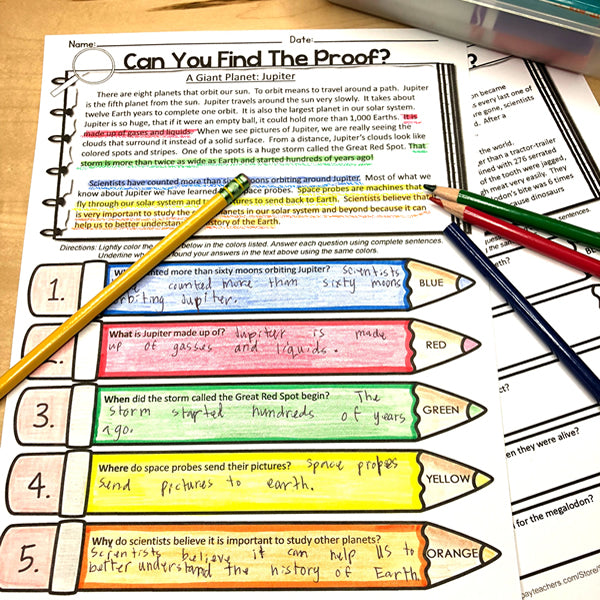 Name: Date:
Can You Find The Proof?
A Giant Planet: Jupiter
There are eight planets that orbit our sun. To orbit means to travel around a path. Jupiter
is the fifth planet from the sun. Jupiter travels around the sun very slowly. It takes about
twelve Earth years to complete one orbit. It is also the largest planet in our solar system.
Jupiter is so huge, that if it were an empty ball, it could hold more than 1,000 Earths. It is
made up of gases and liquids. When we see pictures of Jupiter, we are really seeing the
clouds that surround it instead of a solid surface. From a distance, Jupiter's clouds look like
colored spots and stripes. One of the spots is a huge storm called the Great Red Spot. That
storm is more than twice as wide as Earth and started hundreds of years ago!
Scientists have counted more than oons orbiting around Jupiter. Most of what we
know about Jupiter we have learned probes. Space probes are machines that
fly through our solar system and t ures to send back to Earth. Scientists believe that
is very important to study the anets in our solar system and beyond because it can
help us to better understan story of the Earth.
Directions: Lightly color the below in the colors listed. Answer each question using complete sentences.
Underline wh ound your answers in the text above using the same colors.
1. W nted more than sixty moons orbiting Jupiter? Scientists
counted more than sixty moons
orbiting Jupiter.
BLUE
What is Jupiter made up of? Jupiter is made
up of gasses and liquids.
RED
3. When did the storm called the Great Red Spot begin? The
storm started hundreds of years
ago.
GREEN
4. Where do space probes send their pictures? Space probes
send pictures to earth.
YELLOW
5. Why do scientists believe it is important to study other planets?
Scientists believe it can help us to
better understand the history of Earth.
ORANGE
?
on became
s every last one of
re gone, scientists
After a
the world.
er than a tractor-trailer
ined with 276 serrated
of the tooth were jagged,
meat very easily. They
odon's bite was 6 times
cause dinosaurs
sentences
th?
ct?
en they were alive?
for the megalodon?
payteachers.com/Store/